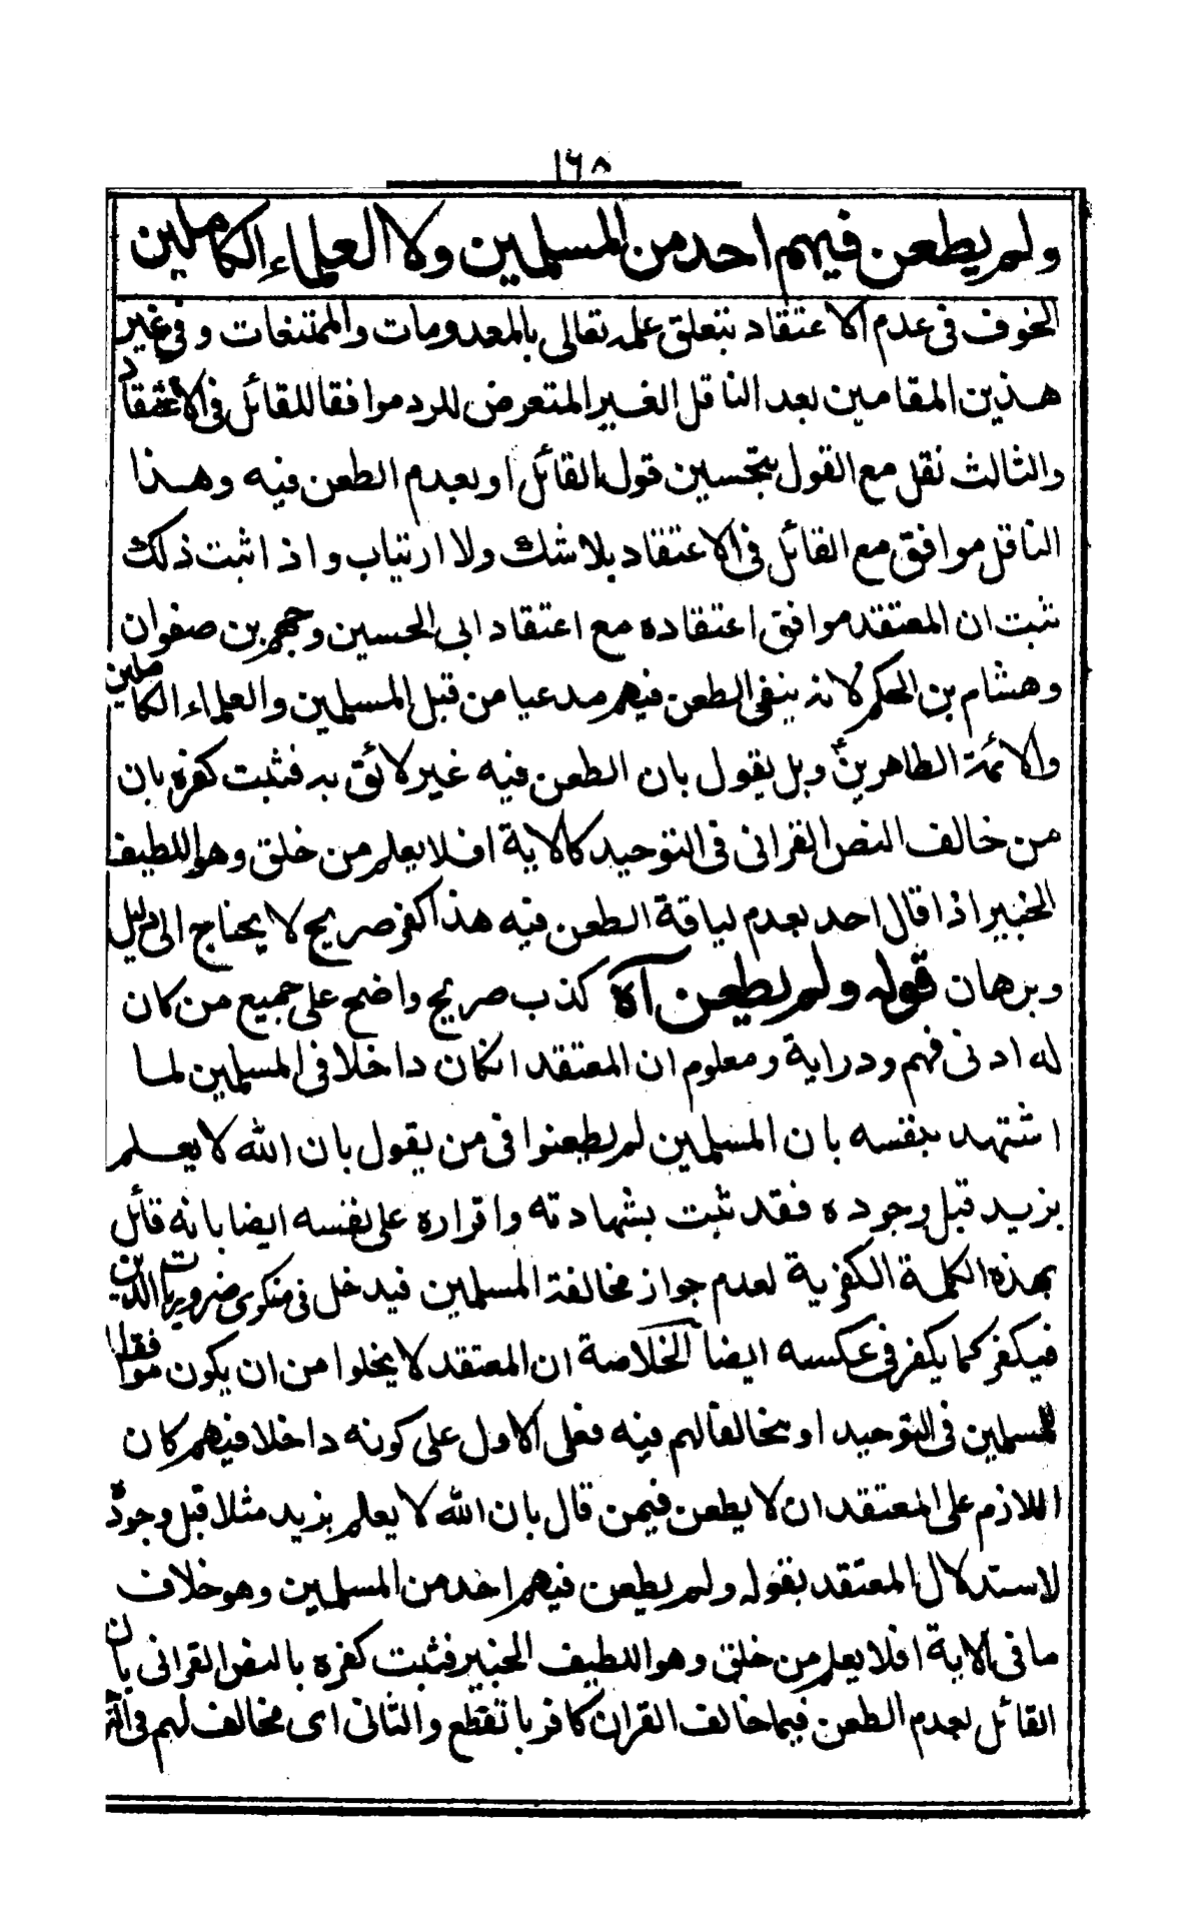 ١٦٨
ولم يطعن فيهم احد من المسلمين ولا العلماء الكاملين
الخوف فى عدم الاعتقاد بتعلق علمه تعالى بالمعدومات والممتنعات وفى غير
هذين المقامين بعد الناقل الغير المتعرض للرد موافقا للقائل فى الاعتقاد
والثالث نقل مع القول بتحسين قول القائل او بعدم الطعن فيه وهذا
الناقل موافق مع القائل فى الاعتقاد بلا شك ولا ارتياب واذا ثبت ذلك
ثبت ان المعتقد موافق اعتقاده مع اعتقاد ابى الحسين وجهم بن صفوان
وهشام بن الحكم لانه ينفى الطعن فيهم مدعيا من قبل المسلمين والعلماء الكاملين
والائمة الطاهرين وبل يقول بان الطعن فيه غير لائق به فثبت كفره بان
من خالف النص القرانى فى التوحيد كالاية افلا يعلم من خلق وهو اللطيف
الخبير اذا قال احد بعدم لياقة الطعن فيه هذا كفر صريح لا يحتاج الى دليل
وبرهان قوله ولم يطعن آه كذب صريح واضح على جميع من كان
له ادنى فهم ودراية ومعلوم ان المعتقد انكان داخلا فى المسلمين لما
اشتهد بنفسه بان المسلمين لم يطعنوا فى من يقول بان الله لا يعلم
بزيد قبل وجوده فقد ثبت بشهادته واقراره على نفسه ايضا بانه قائل
بهذه الكلمة الكفرية لعدم جواز مخالفة المسلمين فيدخل فى منكرى ضروريات الدين
فيكفر كما يكفر فى عكسه ايضا الخلاصة ان المعتقد لا يخلوا من ان يكون موافقا
للمسلمين فى التوحيد او مخالفا لهم فيه فعلى الاول على كونه داخلا فيهم كان
اللازم على المعتقد ان لا يطعن فيمن قال بان الله لا يعلم بزيد مثلا قبل وجوده
لاستدلال المعتقد بقوله ولم يطعن فيهم احد من المسلمين وهو خلاف
ما فى الاية افلا يعلم من خلق وهو اللطيف الخبير فثبت كفره بالنص القرانى بان
القائل بعدم الطعن فيما خالف القران كافر بالقطع والثانى اى مخالف لهم فى